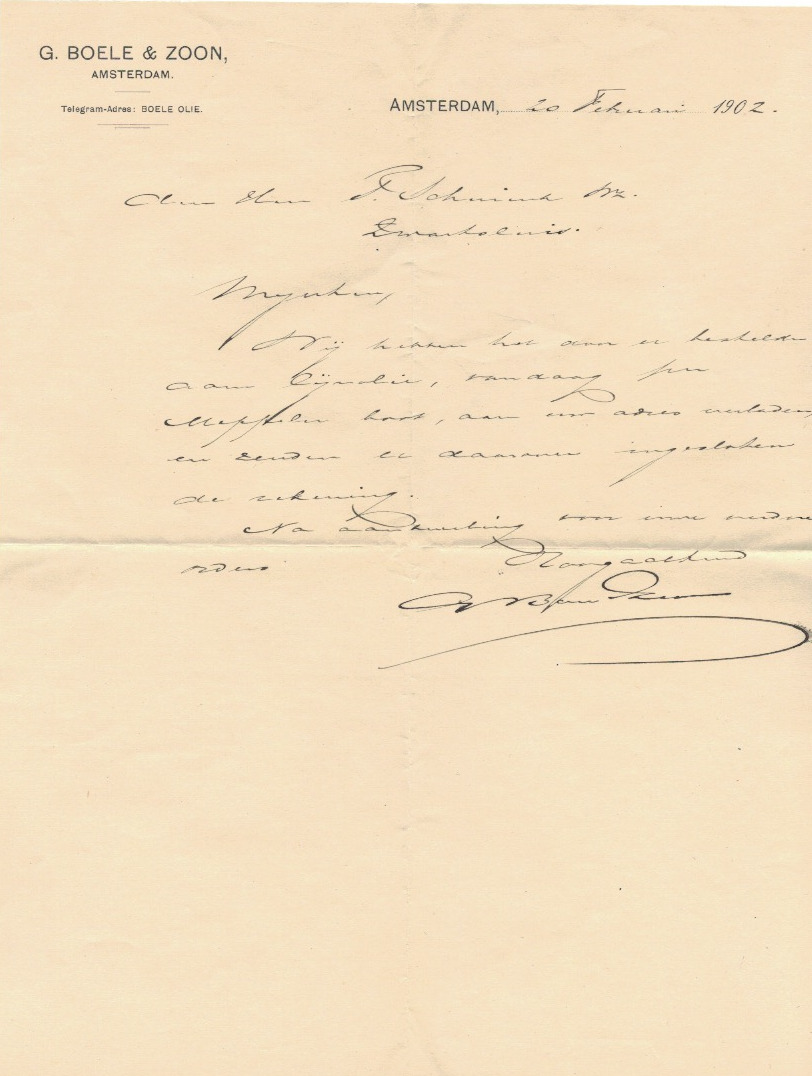 G. BOELE & ZOON,
AMSTERDAM.
Telegram-Adres: BOELE OLIE.
AMSTERDAM, 20 Februari 1902.
Den Heer F. Schuurink Hz.
Zwartsluis.
Mijnheer,
Wij hebben het door u bestelde
aam lijnolie, vandaag per
Meppeler boot, aan uw adres verladen,
en zenden u daarvan ingesloten
de rekening.
Na aanbeveling voor uwe verdere
orders
Hoogachtend
G Boele & Zoon